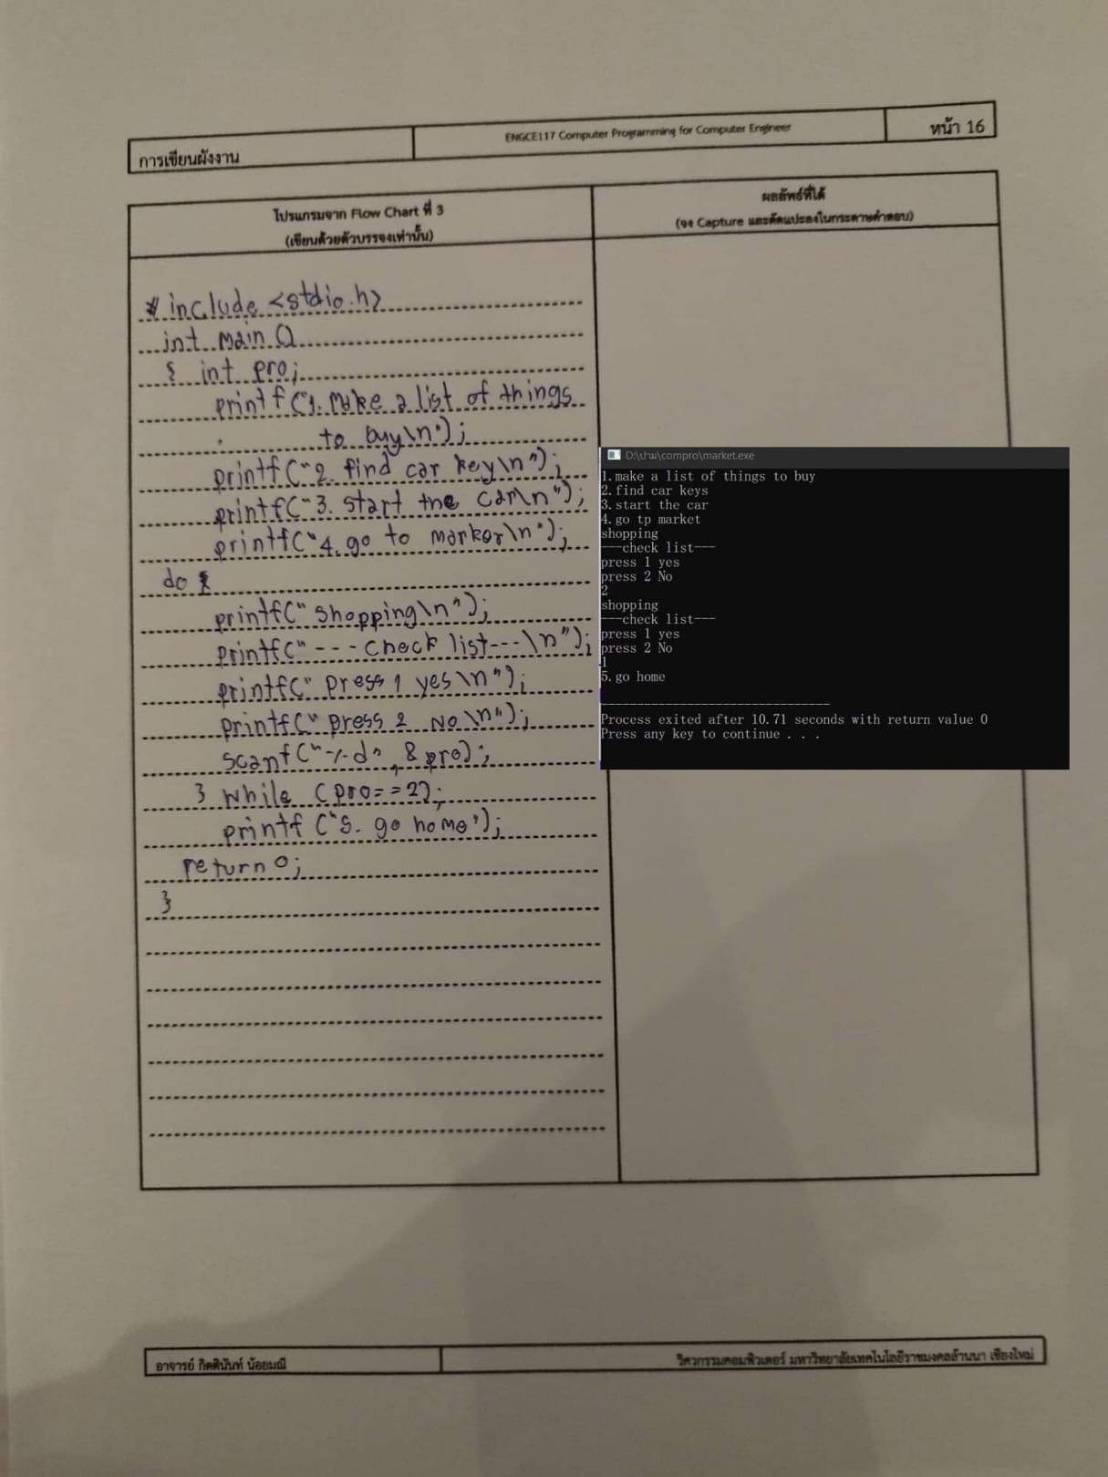 การเขียนผังงาน
ENGCE117 Computer Programming for Computer Engineer
หน้า 16
โปรแกรมจาก Flow Chart ที่ 3
(เขียนด้วยตัวบรรจงเท่านั้น)
ผลลัพธ์ที่ได้
(จง Capture และตัดแปะลงในกระดาษคำตอบ)
# include <stdio.h>
int main ()
{ int pro;
printf("1. Make a list of things
to buy\n");
printf("2. find car key\n");
printf("3. start the car\n");
printf("4. go to market\n");
do {
printf(" shopping\n");
printf("--- check list---\n");
printf(" press 1 yes\n");
printf(" press 2 No\n");
scanf("%d", &pro);
} while (pro==2);
printf ("5. go home");
return 0;
}
D:\เทม\compro\market.exe
1.make a list of things to buy
2.find car keys
3.start the car
4.go tp market
shopping
---check list---
press 1 yes
press 2 No
2
shopping
---check list---
press 1 yes
press 2 No
1
5.go home
--------------------------------
Process exited after 10.71 seconds with return value 0
Press any key to continue . . .
อาจารย์ กิตตินันท์ น้อยมณี
วิศวกรรมคอมพิวเตอร์ มหาวิทยาลัยเทคโนโลยีราชมงคลล้านนา เชียงใหม่